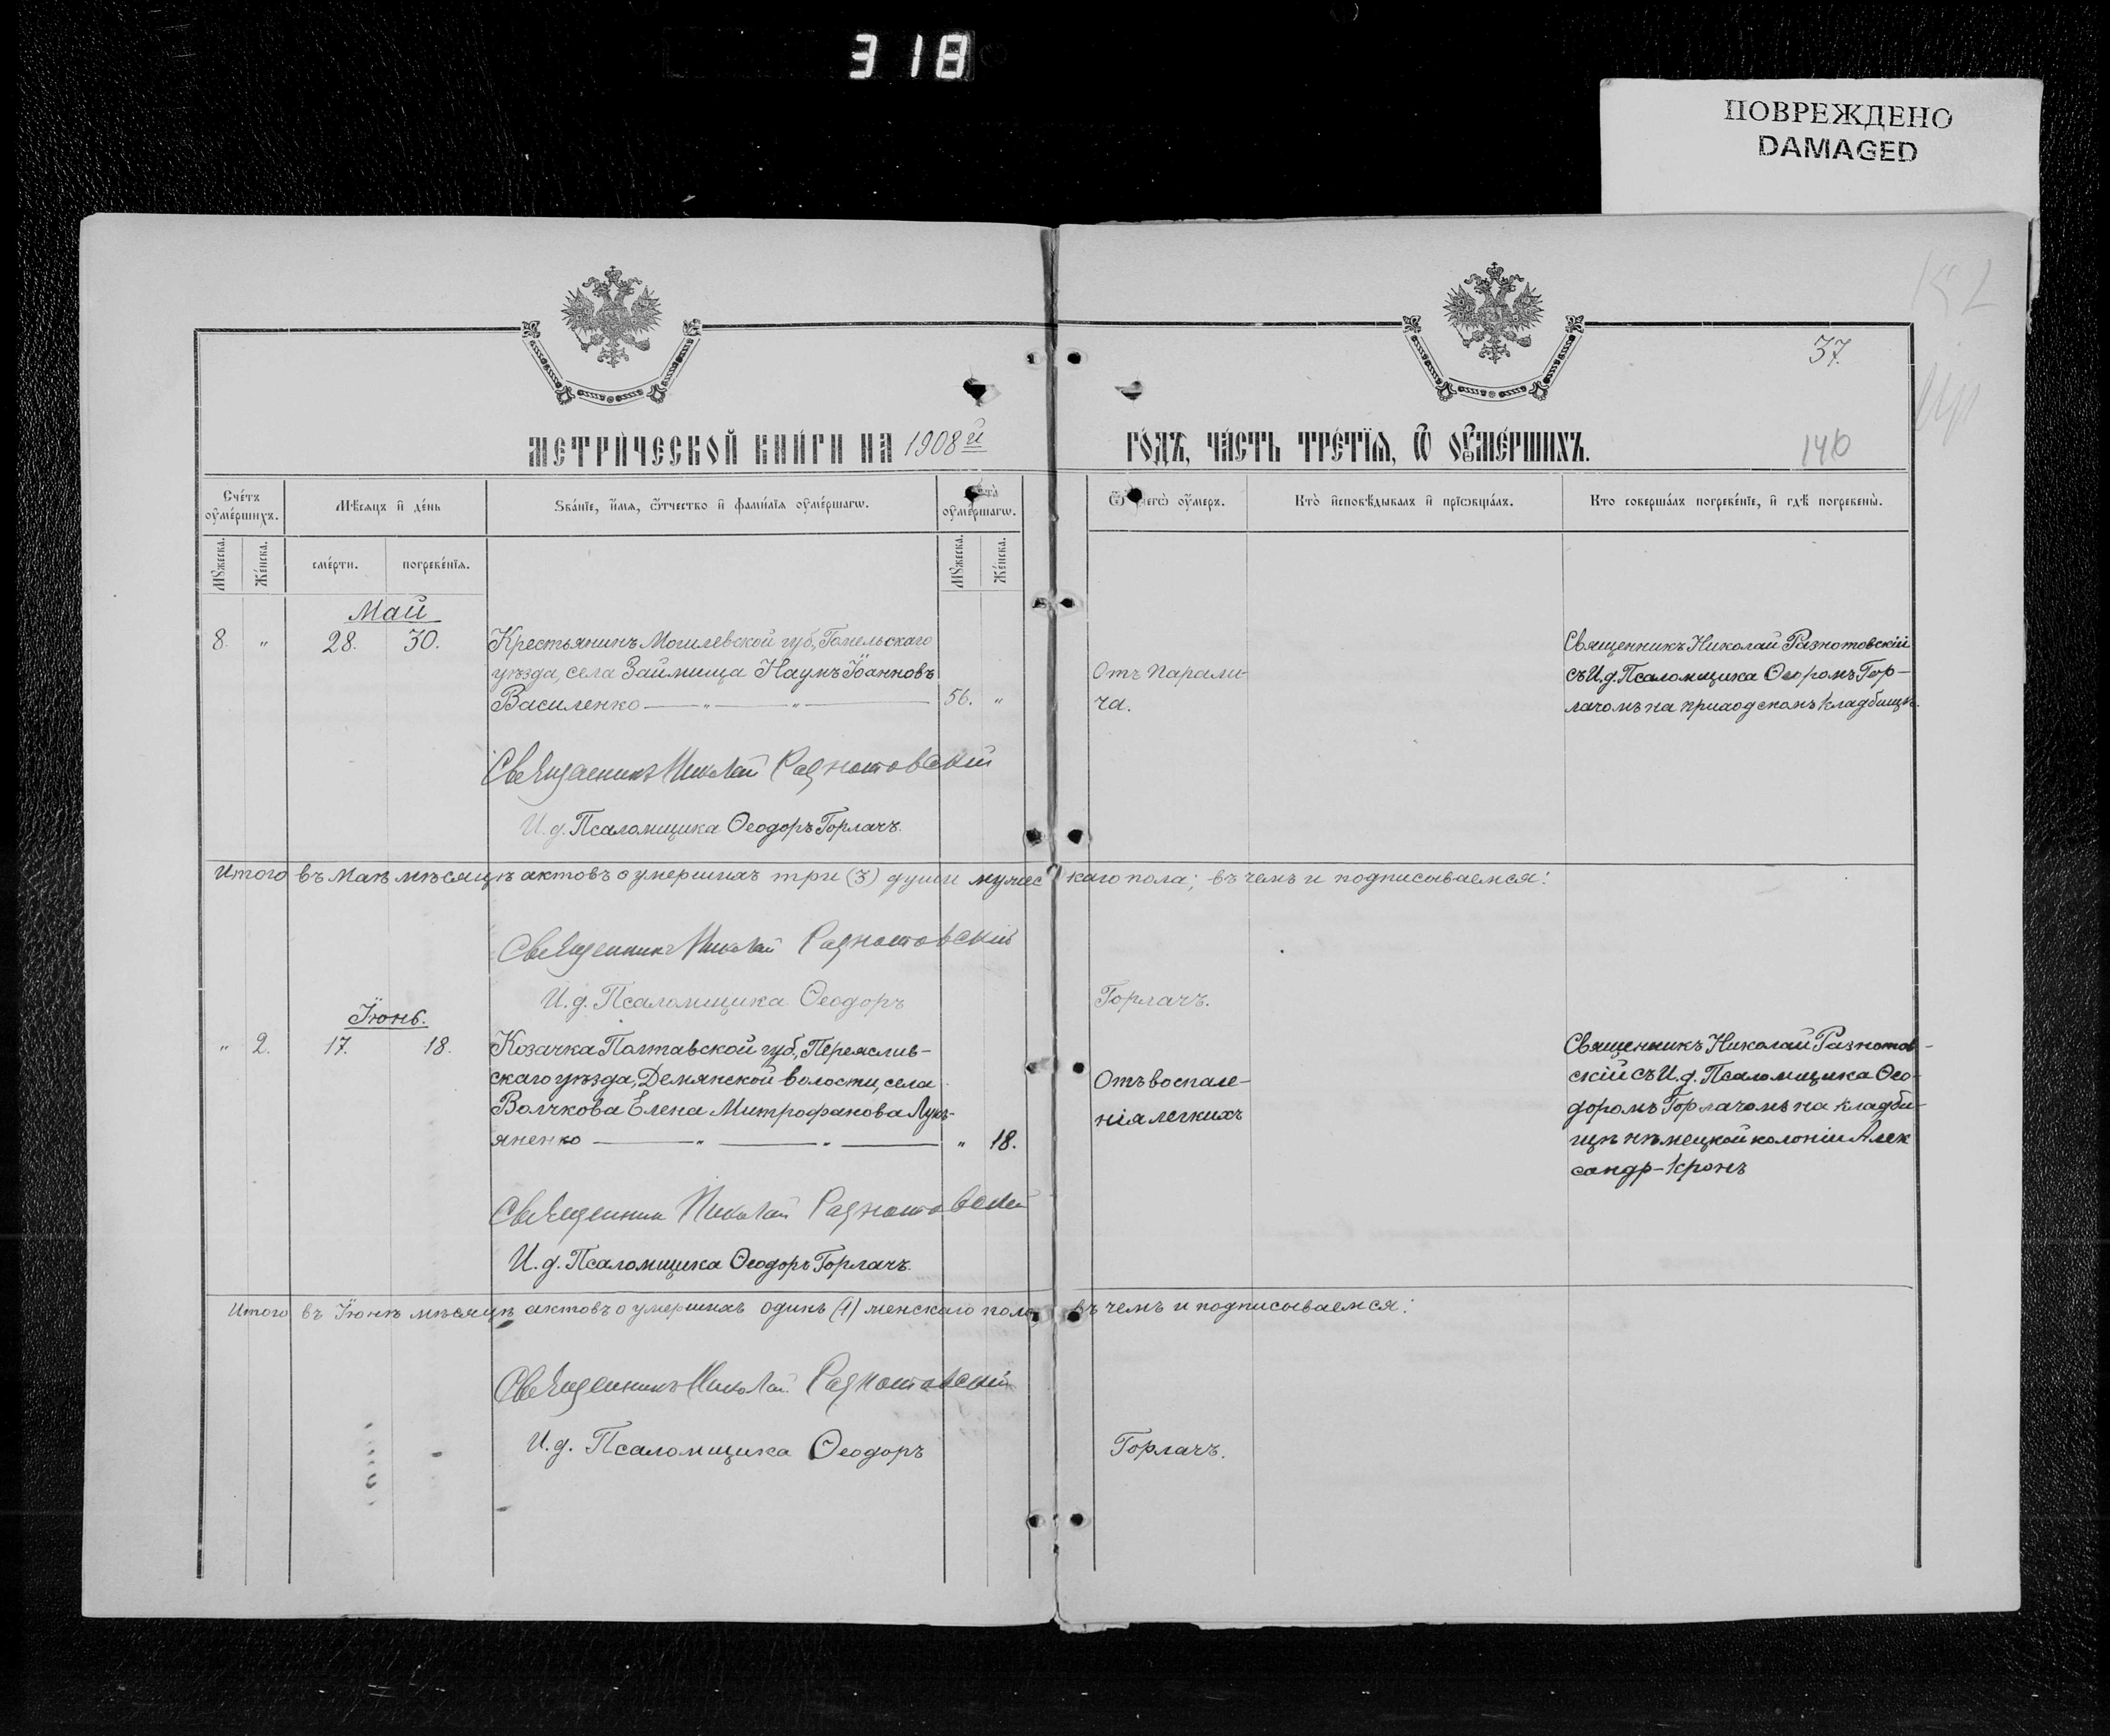 318
ПОВРЕЖДЕНО
DAMAGED
37.
МЕТРИ́ЧЕСКОЙ КНИ́ГИ НА 1908й
ГО́ДЪ, ЧА́СТЬ ТРЕ́ТЇѦ, Ѿ ОУ҆МЕ́РШИХЪ.
140
Сче́тъ оу҆ме́ршихъ.
Мѣ́сѧцъ и҆ де́нь
Ѕва́нїе, и҆́мѧ, ѻ҆́тчество и҆ фами́лїѧ оу҆ме́ршагѡ.
оу҆ме́ршагѡ.
Ѿ чегѡ̀ оу҆́меръ.
Кто̀ и҆сповѣ́дывалъ и҆ прїѡбща́лъ.
Кто соверша́лъ погребе́нїе, и҆ гдѣ̀ погребены̀.
Мꙋ́жеска.
Же́нска.
сме́рти.
погребе́нїѧ.
Мꙋ́жеска.
Же́нска.
Май
8. " 28. 30. Крестьянинъ Могилевской губ., Гомельскаго
уѣзда, села Займища Наумъ Іоанновъ
Василенко — " — " — 56. "
Отъ парали-
ча.
Священникъ Николай Разнотовскій
съ И.д. Псаломщика Ѳеодромъ Гор-
лачомъ на приходскомъ кладбищѣ.
Священникъ Николай Разнотовскій
И.д. Псаломщика Ѳеодоръ Горлачъ.
Итого въ Маѣ мѣсяцѣ актовъ о умершихъ три (3) души мужескаго пола; въ чемъ и подписываемся:
Священникъ Николай Разнотовскій
И.д. Псаломщика Ѳеодоръ Горлачъ.
Іюнь.
" 2. 17. 18. Козачка Полтавской губ., Переяслив-
скаго уѣзда, Демянской волости, села
Волчкова Елена Митрофанова Лукь-
яненко — " — " — " 18.
Отъ воспале-
нія легкихъ
Священникъ Николай Разнотов-
скій съ И.д. Псаломщика Ѳео-
доромъ Горлачомъ на кладби-
щѣ нѣмецкой колоніи Алек
сандр-Кронъ
Священникъ Николай Разнотовскій
И.д. Псаломщика Ѳеодоръ Горлачъ.
Итого въ Іюнѣ мѣсяцѣ актовъ о умершихъ одинъ (1) женскаго пола въ чемъ и подписываемся:
Священникъ Николай Разнотовскій
И.д. Псаломщика Ѳеодоръ Горлачъ.